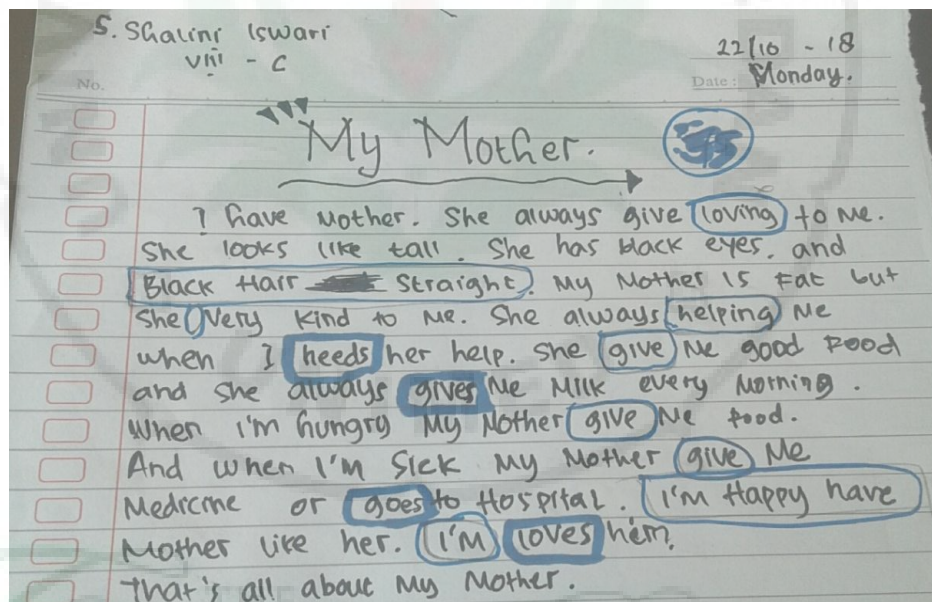 S. Shalini Iswari
VIII - C
22/10 - 18
No.
Date: Monday.
My Mother.
I have Mother. She always give loving to Me.
She looks like tall. She has black eyes. and
Black Hair Straight. My Mother Is Fat but
She Very kind to Me. She always helping Me
when I needs her help. She give Me good Food
and she always gives Me Milk every Morning.
When I'm hungry My Mother give Me food.
And when I'm Sick My Mother give Me
Medicine or goes to Hospital. I'm Happy have
Mother like her. I'm loves
That's all about My Mother.